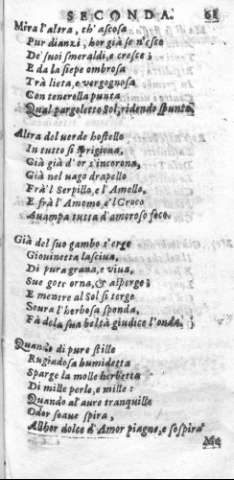 SECONDA. 61
Mira l'altra, ch'ascosa
Pur dianzi, hor già se n'esce
De' suoi smeraldi, e cresce;
E da la siepe ombrosa
Trà lieta, e vergognosa
Con tenerella punta
Qual pargoletto Sol, ridendo spunta.
Altra del verde hostello
In tutto si sprigiona,
Già già d'or s'incorona,
Già nel vago drapello
Frà'l Serpillo, e l'Amello,
E frà l'Amomo, e'l Croco
Auampa tutta d'amoroso foco.
Già del suo gambo s'erge
Giouinetta lasciua,
Di pura grana, e viua,
Sue gote orna, & asperge;
E mentre al Sol si terge
Soura l'herbosa sponda,
Fà della sua beltà giudice l'onda.
Quando di pure stille
Rugiadosa humidetta
Sparge la molle herbetta
Di mille perle, e mille:
Quando al'aure tranquille
Odor soaue spira,
Allhor dolce d'Amor piagne, e sospira